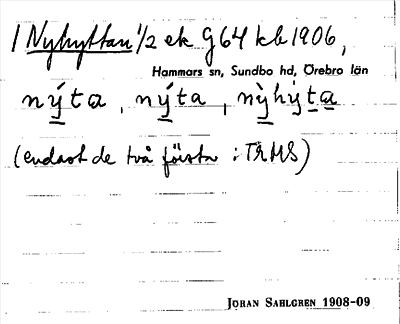 1 Nyhyttan 1/2 ek G64 kb 1906,
Hammars sn, Sundbo hd, Örebro län
nýta, nýta, nỳhýta
(endast de två första i TRMS)
JOHAN SAHLGREN 1908-09